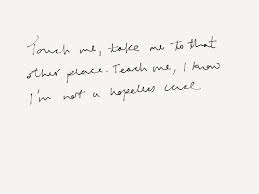 Touch me, take me to that
other place. Teach me, I know
I'm not a hopeless case